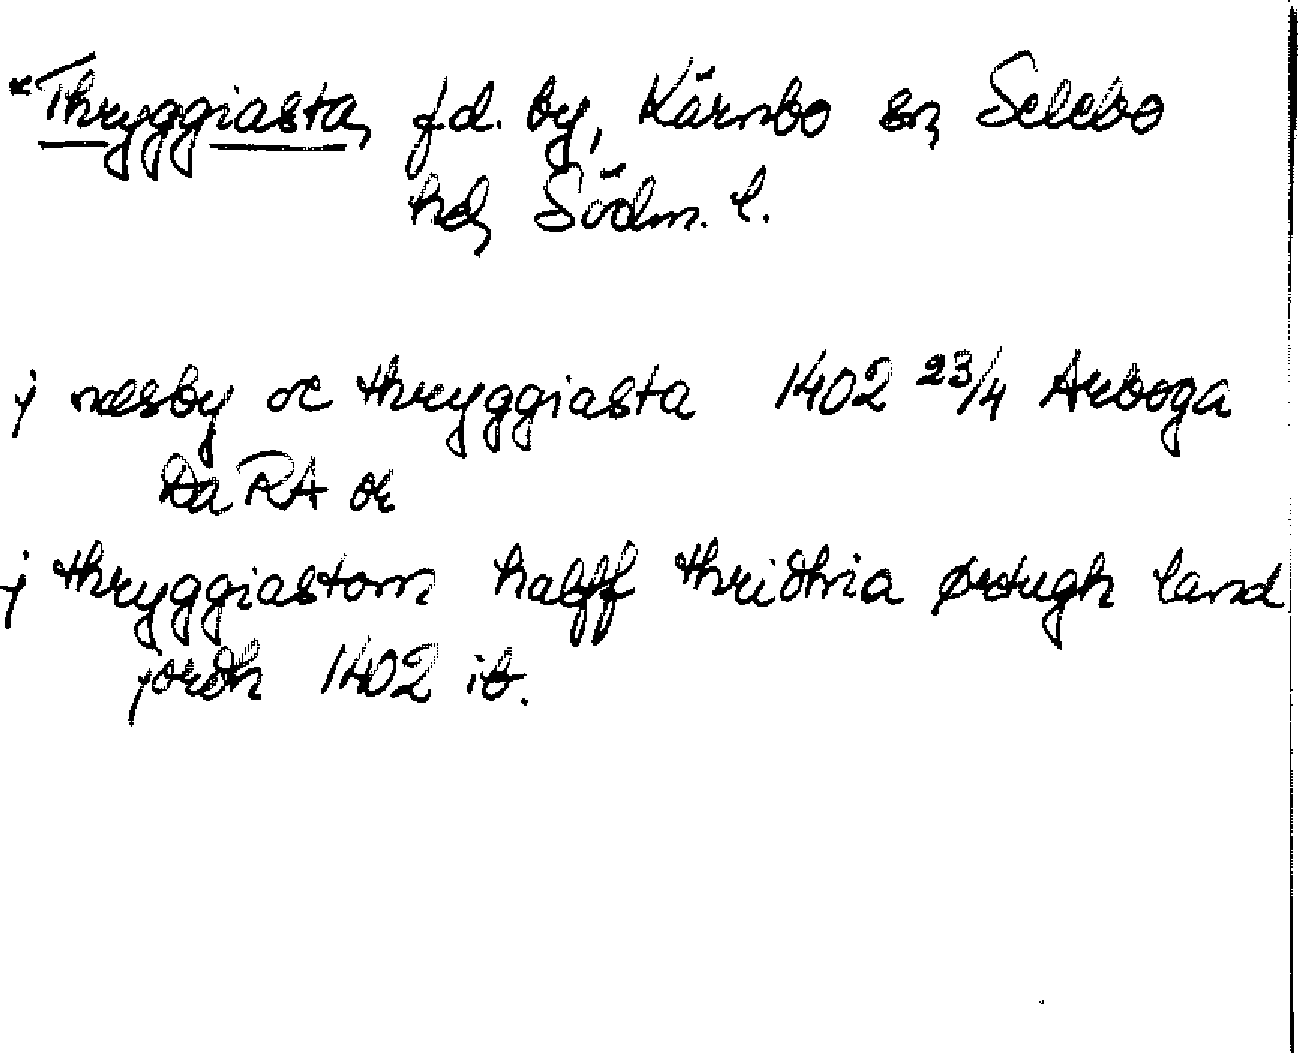 *Thryggiasta, f.d. by, Kärnbo sn, Selebo
hd, Södm. l.
j næsby oc thryggiasta 1402 23/4 Arboga
Da RA or
j thryggiastom halff thridhia ørtugh land
jordh 1402 ib.